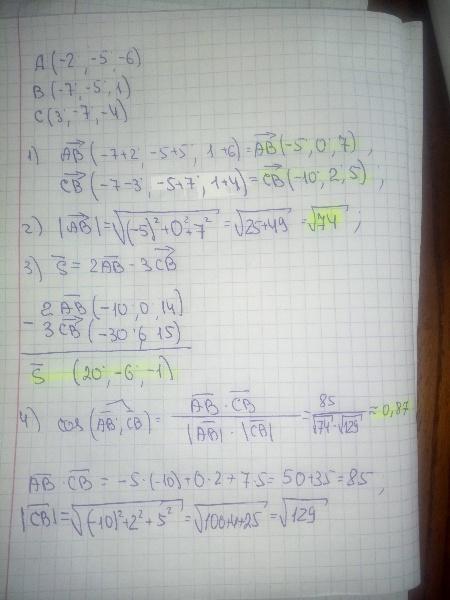 A(-2; -5; -6)
B(-7; -5; 1)
C(3; -7; -4)
1) AB⃗ (-7+2; -5+5; 1+6) = AB⃗ (-5; 0; 7);
CB⃗ (-7-3; -5+7; 1+4) = CB⃗ (-10; 2; 5);
2) |AB⃗| = √((-5)²+0²+7²) = √(25+49) = √74;
3) s̅ = 2A̅B̅ - 3CB⃗
2AB⃗ (-10; 0; 14)
- 3CB⃗ (-30; 6; 15)
s̅ (20; -6; -1)
4) cos(A̅B̅; C̅B̅) = (A̅B̅ · C̅B̅)/(|A̅B̅| · |C̅B̅|) = 85/(√74 · √129) ≈ 0,87
A̅B̅ · C̅B̅ = -5·(-10)+0·2+7·5 = 50+35 = 85,
|C̅B̅| = √((-10)²+2²+5²) = √(100+4+25) = √129